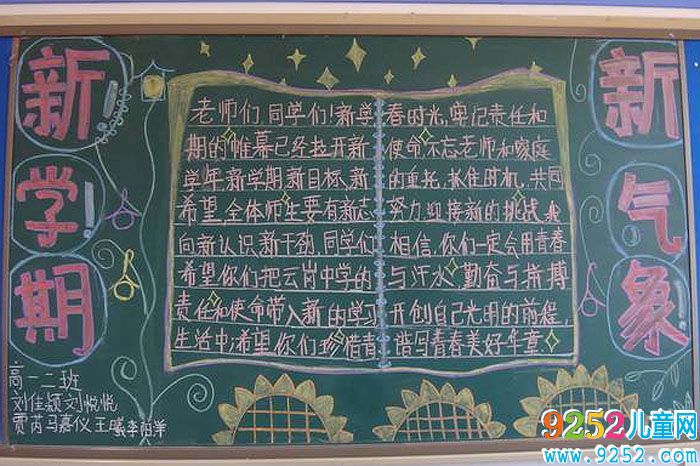 新学期
新气象
老师们同学们!新学
期的帷幕已经拉开新
学年新学期新目标新
希望全体师生要有新志
向新认识新干劲,同学们
希望你们把云岗中学的
责任和使命带入新的学习
生活中,希望你们珍惜青
春时光,牢记责任和
使命不忘老师和家庭
的重托,抓住时机,共同
努力,迎接新的挑战,我
相信,你们一定会用青春
与汗水,勤奋与拼搏
开创自己光明的前程,
谱写青春美好华章
高一二班
刘佳颖刘悦悦
贾芮马嘉仪王曦李阳洋
9252儿童网
www.9252.com